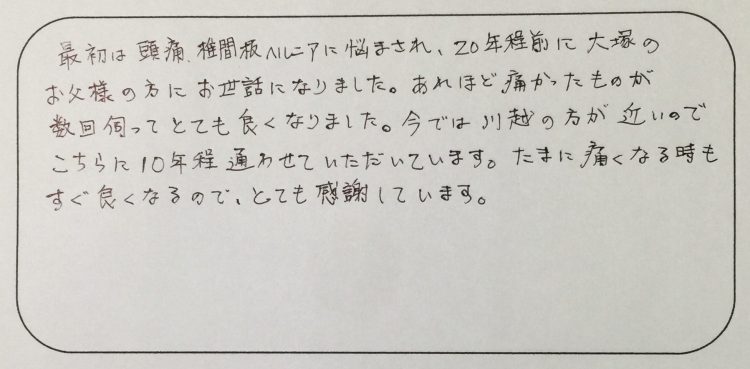 最初は頭痛、椎間板ヘルニアに悩まされ、20年程前に大塚の
お父様の方にお世話になりました。あれほど痛かったものが
数回伺ってとても良くなりました。今では川越の方が近いので
こちらに10年程通わせていただいています。たまに痛くなる時も
すぐ良くなるので、とても感謝しています。